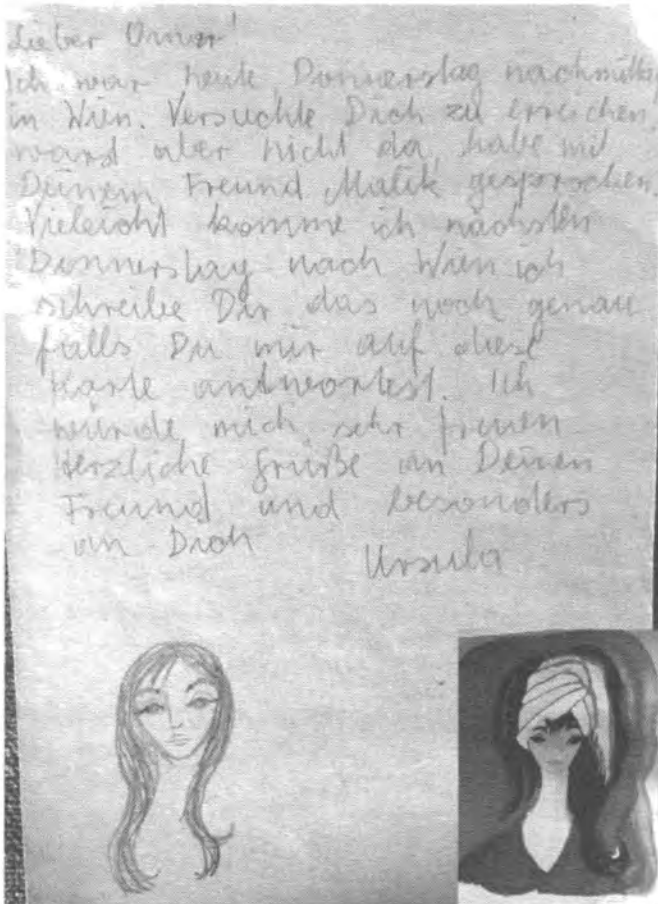 Lieber Omer!
Ich war heute Donnerstag nachmittag
in Wien. Versuchte Dich zu erreichen,
warst aber nicht da, habe mit
Deinem Freund Malik gesprochen.
Vieleicht komme ich nächsten
Donnerstag nach Wien ich
schreibe Dir das noch genau
falls Du mir auf diese
Karte antwortest. Ich
würde mich sehr freuen
Herzliche Grüße an Deinen
Freund und besonders
an Dich
Ursula